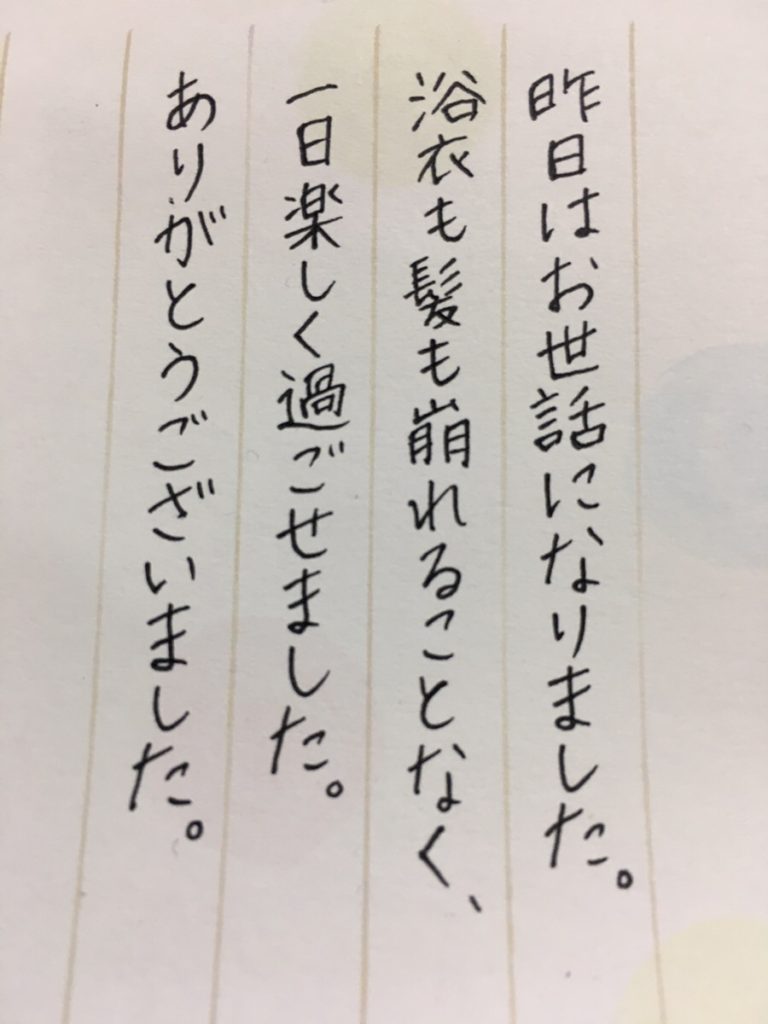 昨日はお世話になりました。
浴衣も髪も崩れることなく、
一日楽しく過ごせました。
ありがとうございました。